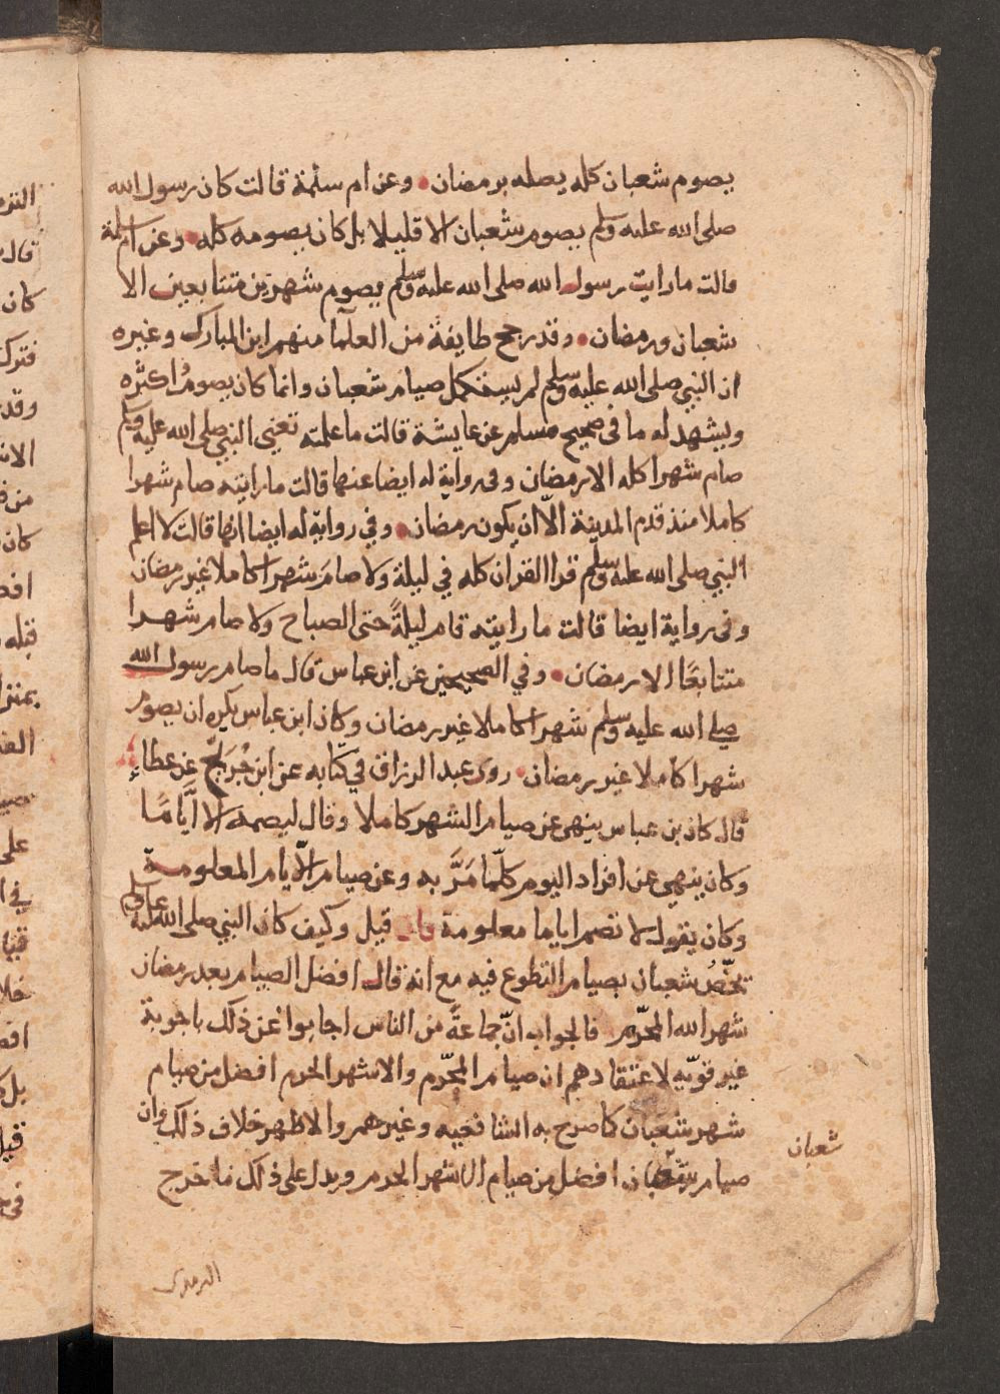 يصوم شعبان كله يصله برمضان • وعن ام سلمة قالت كان رسول الله
صلى الله عليه وسلم يصوم شعبان الا قليلا بل كان يصومه كله • وعن ام سلمة
قالت ما رايت رسول الله صلى الله عليه وسلم يصوم شهرين متتابعين الا
شعبان ورمضان • وقد رجح طايفة من العلما منهم ابن المبارك وغيره
ان النبي صلى الله عليه وسلم لم يستكمل صيام شعبان وانما كان يصوم اكثره
ويشهد له ما في صحيح مسلم عن عايشة قالت ما علمته تعني النبي صلى الله عليه وسلم
صام شهرا كله الا رمضان وفي رواية له ايضا عنها قالت ما رايته صام شهرا
كاملا منذ قدم المدينة الّا ان يكون رمضان • وفي رواية له ايضا انها قالت لا اعلم
النبي صلى الله عليه وسلم قرا القران كله في ليلة ولا صام شهرا كاملا غير رمضان
وفي رواية ايضا قالت ما رايته قام ليلةً حتى الصباح ولا صام شهرا
متتابعًا الا رمضان • وفي الصحيحين عن ابن عباس قال ما صام رسول الله
صلى الله عليه وسلم شهرا كاملا غير رمضان وكان ابن عباس يكره ان يصوم
شهرا كاملا غير رمضان • روى عبد الرزاق في كتابه عن ابن جُرَيجٍ عن عطاءٍ
قال كان بن عباس ينهى عن صيام الشهر كاملا وقال ليصمه الا ايَّامًا
وكان ينهى عن افراد اليوم كلّما مَرَّ به وعن صيام الايام المعلومة
وكان يقول لا تصم اياما معلومة فان قيل وكيف كان النبي صلى الله عليه وسلم
يخُصُّ شعبان بصيام التطوع فيه مع انه قال افضل الصيام بعد رمضان
شهر الله المحرّم فالجواب انّ جماعةً من الناس اجابوا عن ذلك باجوبة
غير قويّه لاعتقادهم ان صيام المحرّم والاشهر الحرم افضل من صيام
شهر شعبان كما صرح به الشافعيه وغيرهم والاظهر خلاف ذلك وان
صيام شعبان افضل من صيام الاشهر الحرم ويدل على ذلك ما خرج
شعبان
الترمذي